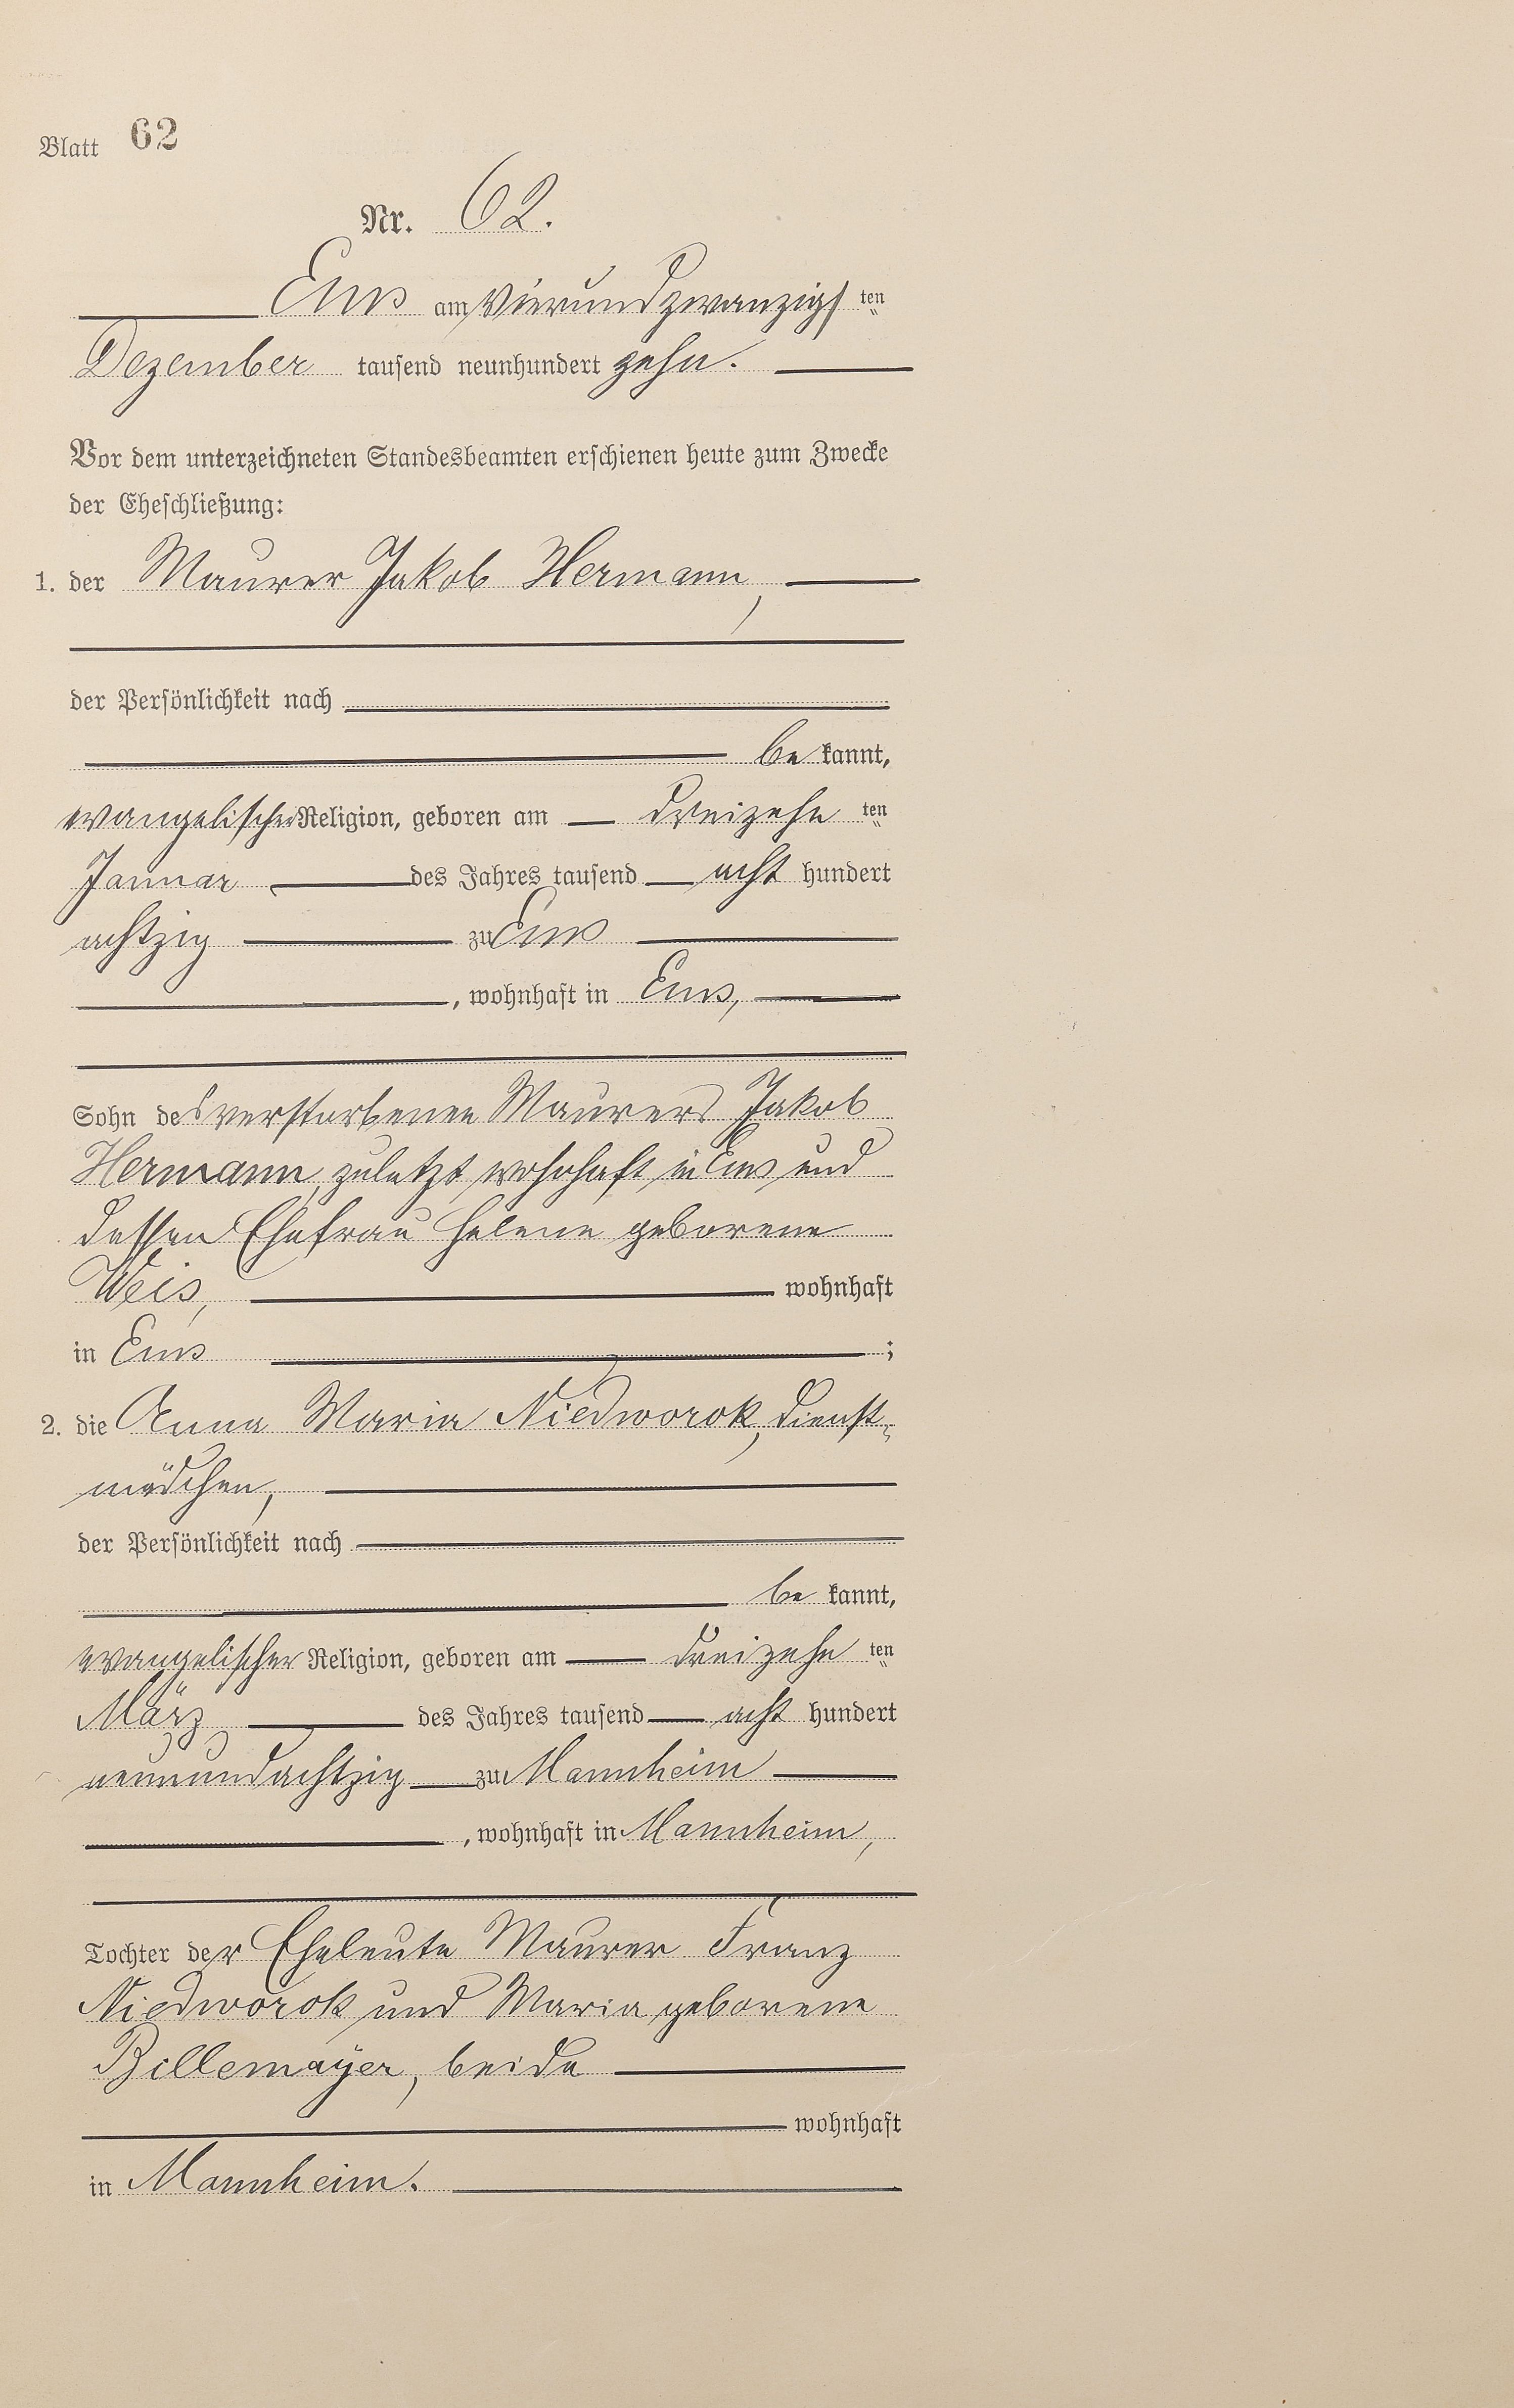 Blatt 62
Nr. 62.
Ems am vierundzwanzigsten
Dezember tausend neunhundert zehn.
Vor dem unterzeichneten Standesbeamten erschienen heute zum Zwecke
der Eheschließung:
1. der Maurer Jakob Hermann,
der Persönlichkeit nach
be kannt,
evangelischer Religion, geboren am dreizehn ten
Januar des Jahres tausend acht hundert
achtzig zu Ems
, wohnhaft in Ems,
Sohn des verstorbenen Maurers Jakob
Hermann, zuletzt wohnhaft in Ems und
dessen Ehefrau Helene geborene
Weis, wohnhaft
in Ems ;
2. die Anna Maria Niedworok, Dienst-
mädchen,
der Persönlichkeit nach
be kannt,
evangelischer Religion, geboren am dreizehn ten
März des Jahres tausend acht hundert
neunundachtzig zu Mannheim
, wohnhaft in Mannheim,
Tochter der Eheleute Maurer Franz
Niedworok und Maria geborene
Billemayer, beide
wohnhaft
in Mannheim.